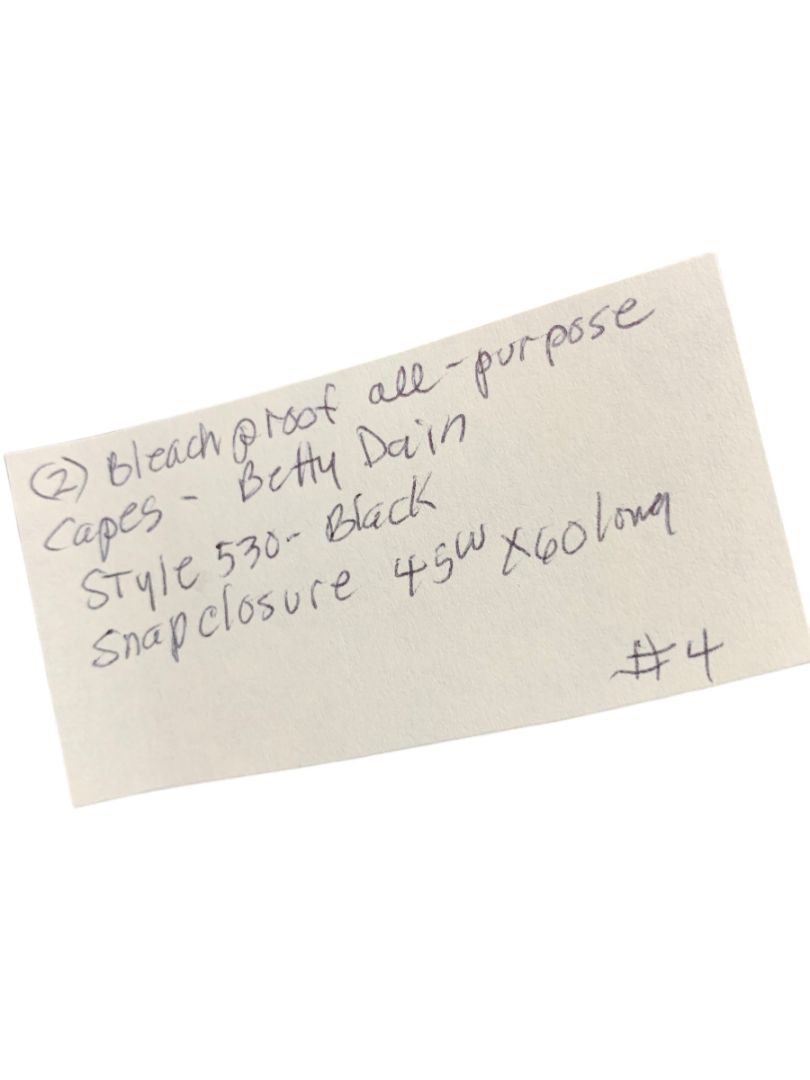 (2) Bleach proof all-purpose
Capes - Betty Dain
Style 530- Black
Snap closure 45W X60 long
#4